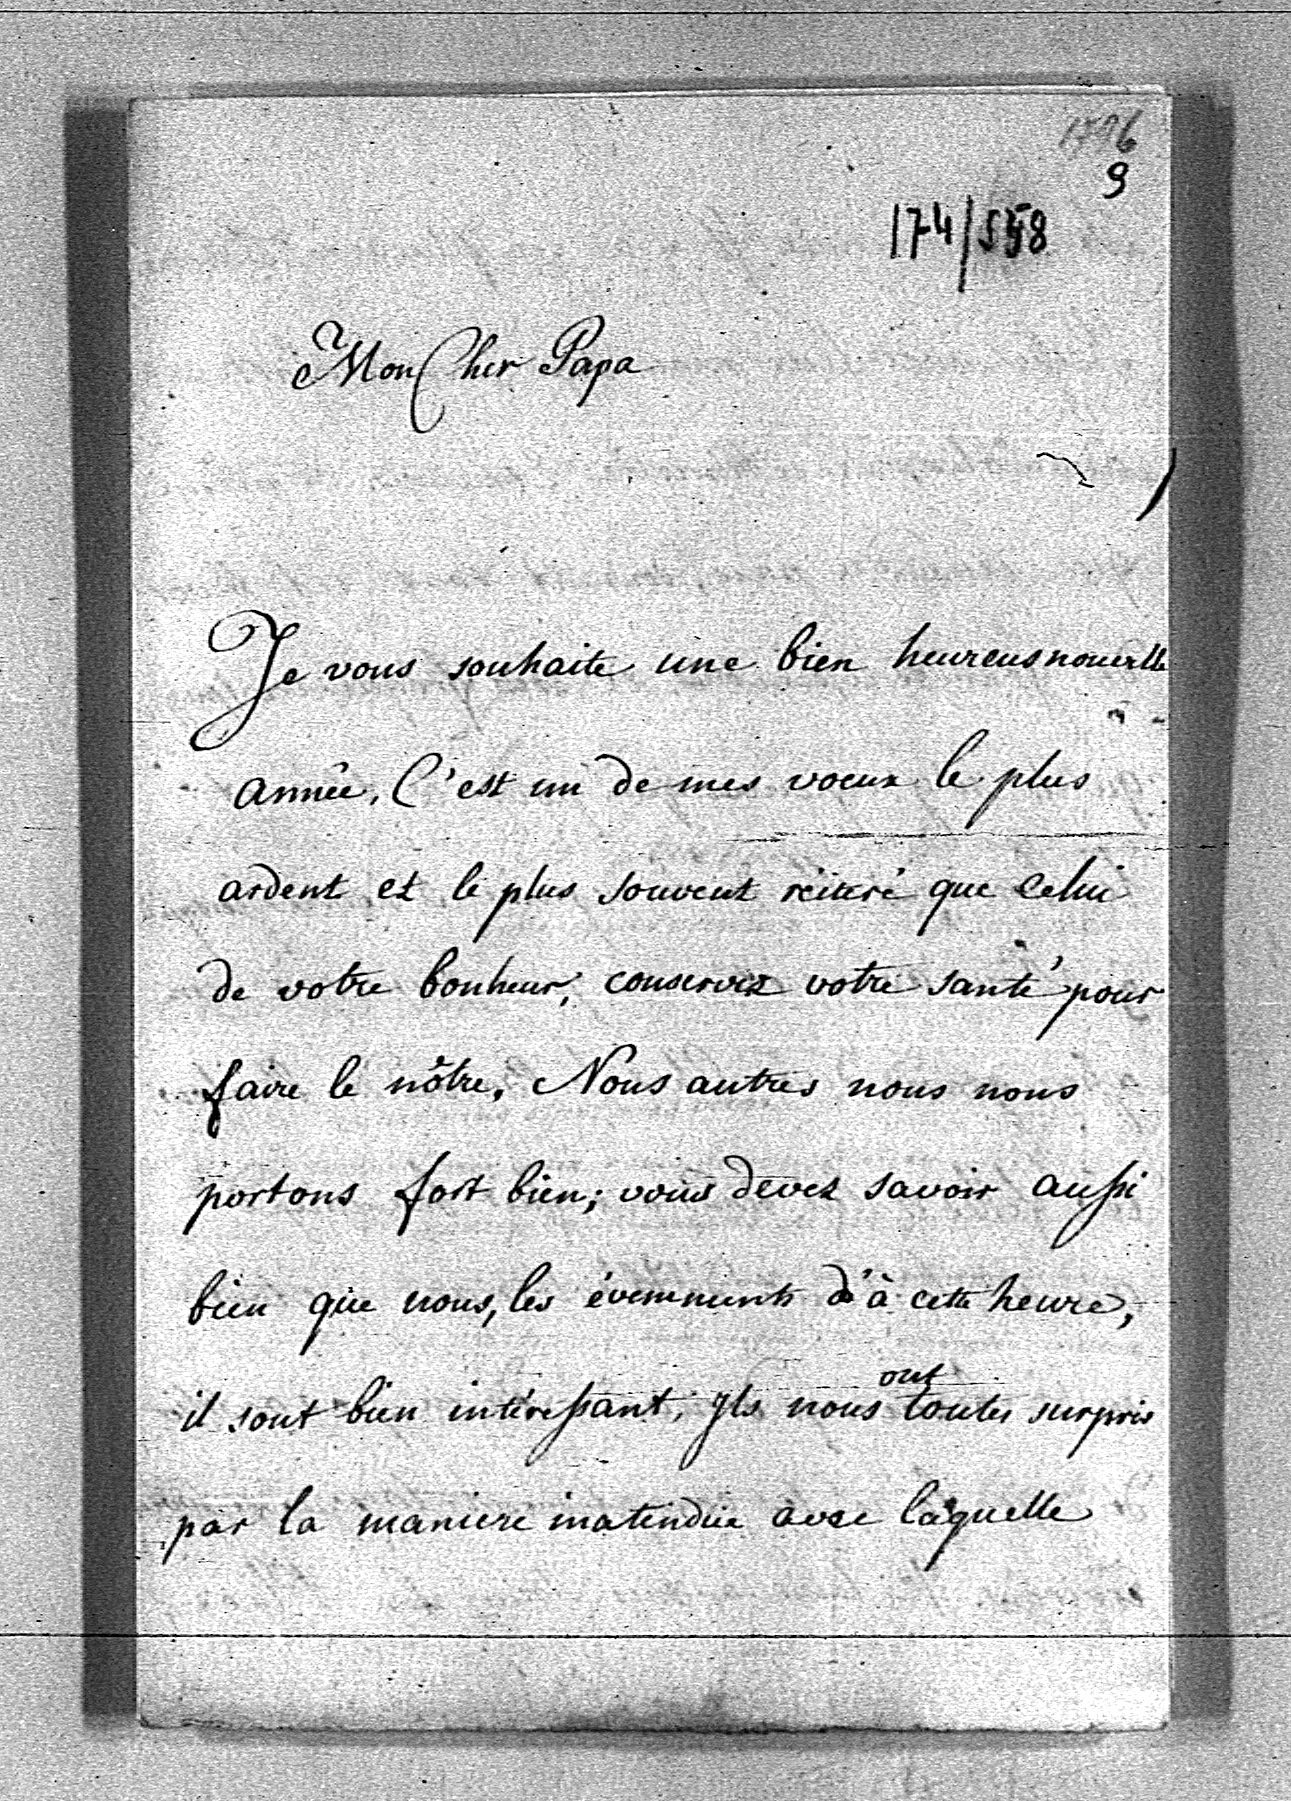 1796
9
174/558
Mon Cher Papa
Je vous souhaite une bien heureus nouvelle
année. C'est un de mes voeux le plus
ardent et le plus souvent réiteré que celui
de votre bonheur, conservez votre santé pour
faire le nôtre. Nous autres nous nous
portons fort bien; vous devez savoir aussi
bien que nous, les évenements d'à cette heure,
il sont bien intéressant. Ils nous ont toutes surpris
par la maniere inatendue avec laquelle